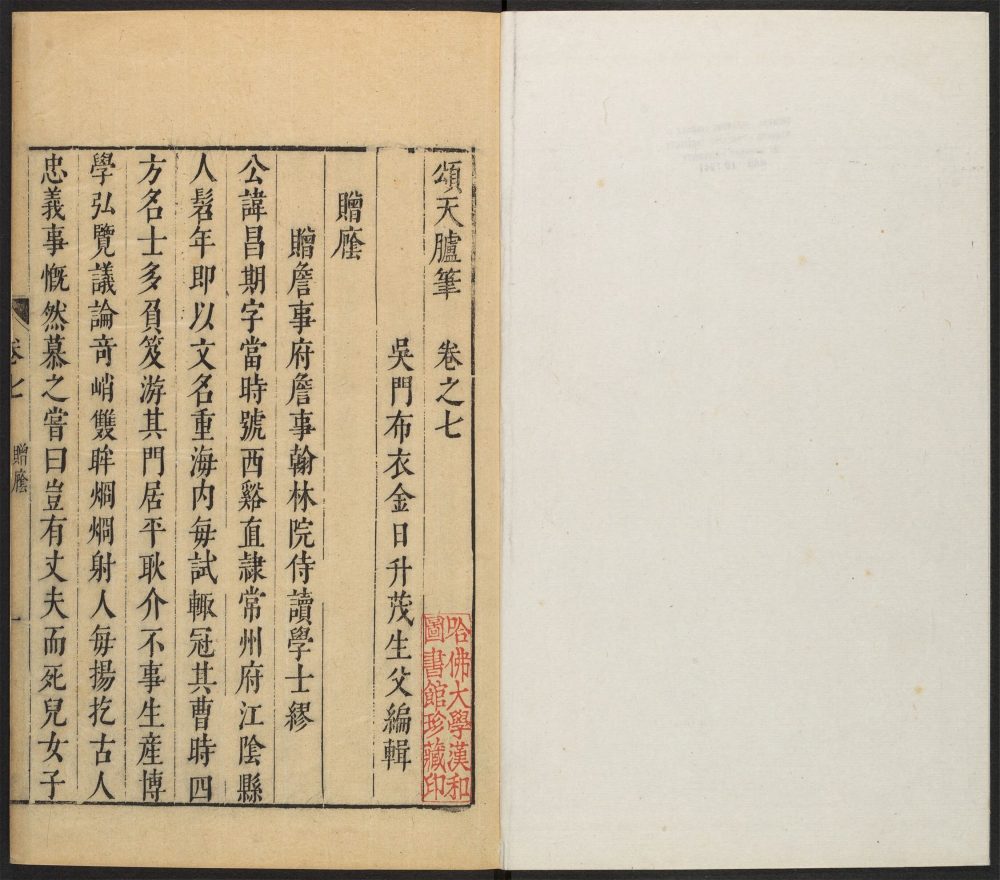 頌天臚筆 卷之七
吳門布衣金日升茂生父編輯
贈廕
贈詹事府詹事翰林院侍讀學士繆
公諱昌期字當時號西谿直隷常州府江陰縣
人髫年即以文名重海内毎試輙冠其曹時四
方名士多負笈游其門居平耿介不事生産博
學弘覽議論竒峭雙眸烱烱射人毎揚扢古人
忠義事慨然慕之嘗曰豈有丈夫而死兒女子
卷七 贈廕 一
哈佛大學漢和
圖書館珍藏印